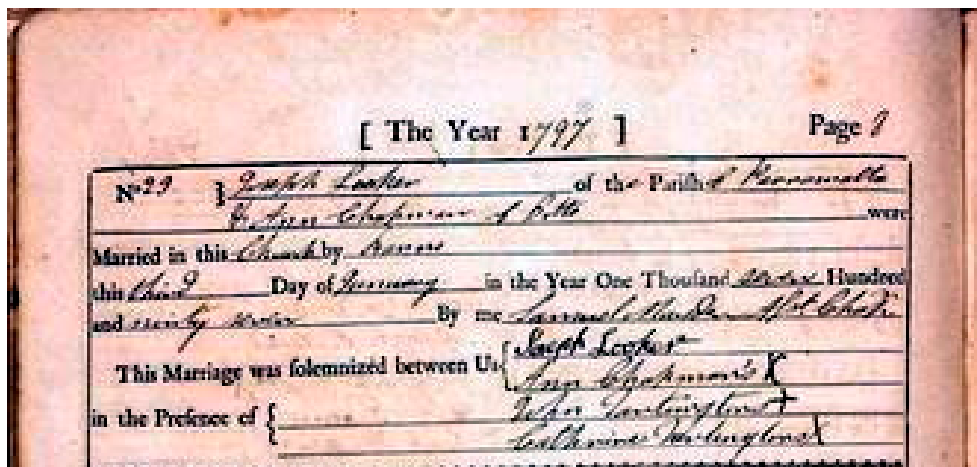 [ The Year 1797 ] Page 9
No 29 } Joseph Looker of the Parish of Parramatta
& Ann Chapman of Ditto were
Married in this Church by Banns
this third Day of January in the Year One Thousand seven Hundred
and ninety seven By me Samuel Marsden Asst Chapn
This Marriage was folemnized between Us { Joseph Looker
Ann Chapman's X
in the Prefence of { John X
Catherine X